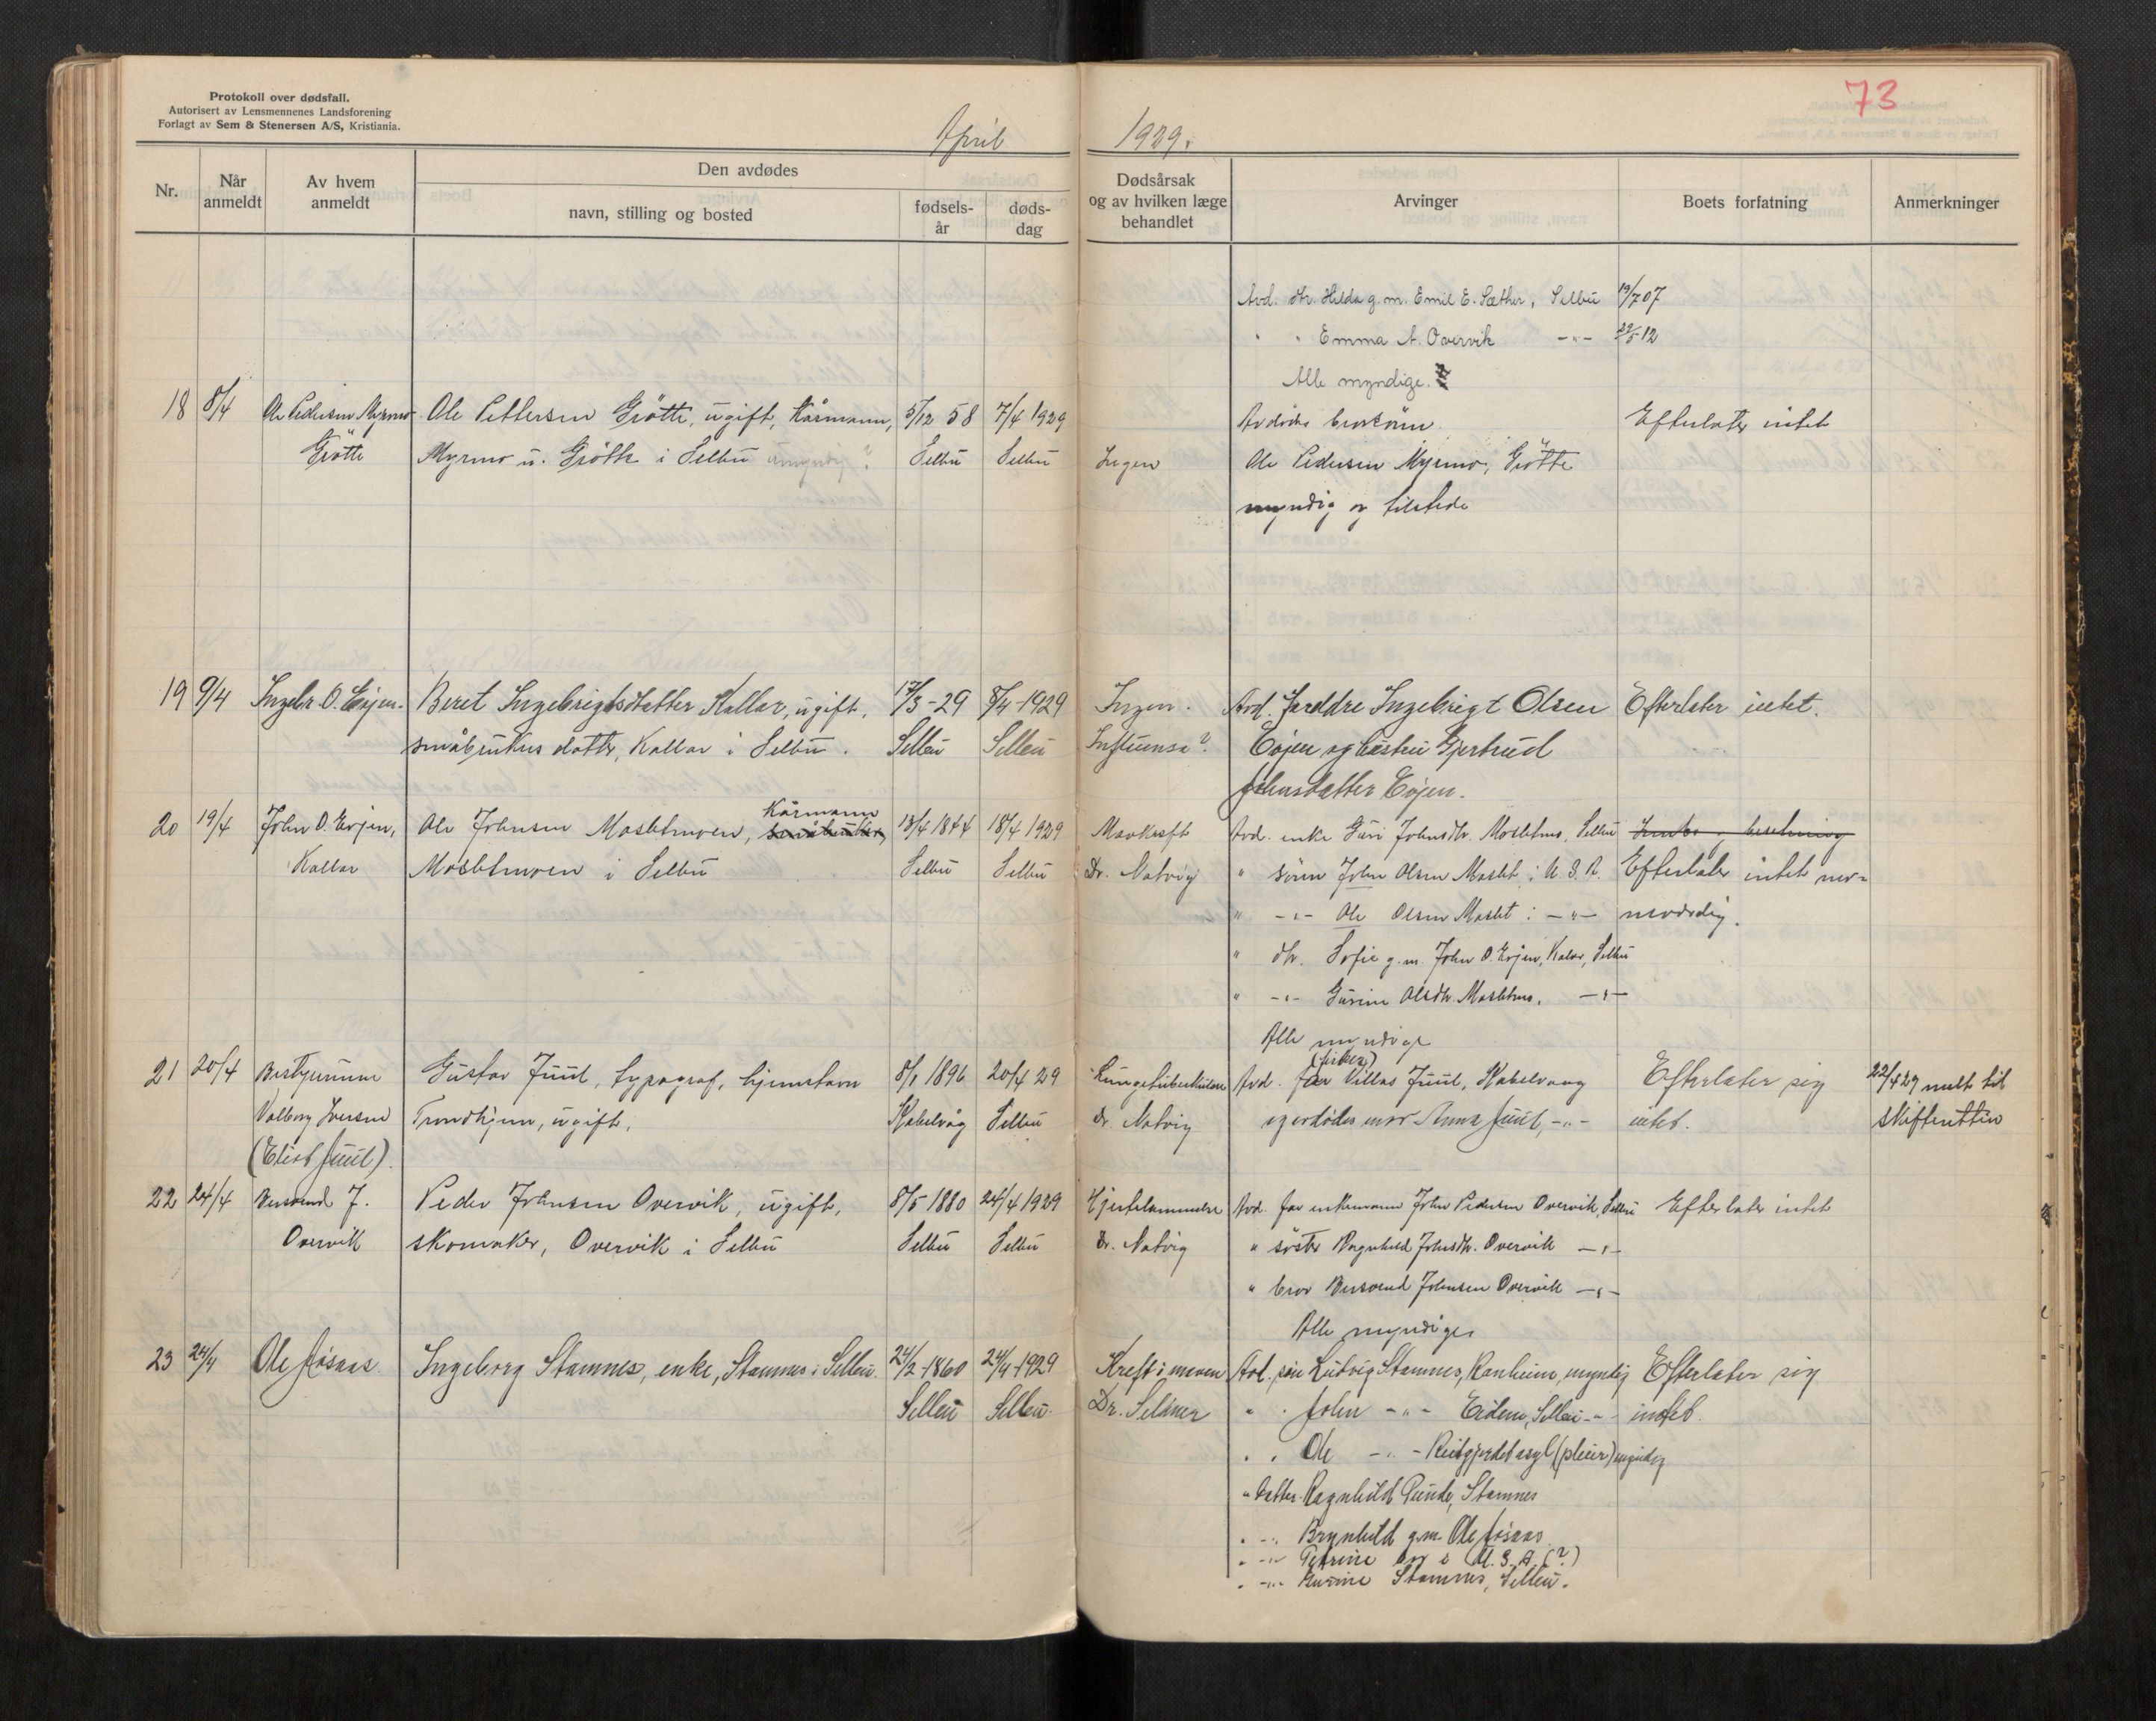 Protokoll over dødsfall.
Autorisert av Lensmennenes Landsforening
Forlagt av Sem & Stenersen A/S, Kristiania.
April 1929.
73
Nr.
Når anmeldt
Av hvem anmeldt
Den avdødes
navn, stilling og bosted
fødsels-år
døds-dag
Dødsårsak og av hvilken læge behandlet
Arvinger
Boets forfatning
Anmerkninger
Avd. dtr. Hilda g. m. Emil E. Sæther, Selbu 19/7 07
" " Emma A. Overvik -"- 22/5 12
Alle myndige.
18 8/4 Ole Pedersen Myrmo Ole Pettersen Grötte, ugift, Kårmann, 5/12 58 7/4 1929 Avdødes brorsönn Efterlater intet
Grötte Myrmo u. Grötte i Selbu Selbu Selbu Ingen Ole Pedersen Myrmo, Grötte
myndig og tilstede
19 9/4 Ingebr. O. Evjen. Beret Ingebrigtsdatter Kallar, ugift, 17/3-29 8/4-1929 Ingen. Avd. foreldre Ingebrigt Olsen Efterlater intet.
småbrukers datter, Kallar i Selbu. Selbu Selbu Influensa? Evjen og hustru Gjertrud
Johnsdatter Evjen.
Kårmann
20 19/4 John O. Evjen, Ole Johnsen Moslitmoen, småbruker, 13/4 1844 18/4 1929 Mavekreft Avd. enke Guri Johnsdtr. Moslitmo, Selbu
Kallar Moslitmoen i Selbu Selbu Selbu Dr. Natvig " sönn John Olsen Moslit i U.S.A. Efterlater intet nev-
" -"- Ole Olsen Moslet i -"- neverdig.
" dtr. Sofie g. m. John O. Evjen, Kalar, Selbu
" -"- Gurine Olsdtr. Moslitmo. -"-
Alle myndige
(fisker)
21 20/4 Bestyrerinne Gustav Juul, typograf, hjemstavn 8/1 1896 20/4 29 Lungetuberkulose Avd. far Villas Juul, Kabelvaag Efterlater sig 22/4 29 meldt til
Valborg Iversen Trondhjem, ugift, Kabelvåg Selbu Dr. Natvig og avdødes mor Anna Juul, -"- intet. skifteretten
(Elist Juul).
22 24/4 Bersvend J. Peder Johnsen Overvik, ugift, 8/5 1880 24/4 1929 Hjertelammelse Avd. far enkemann John Pedersen Overvik, Selbu Efterlater intet
Overvik skomaker, Overvik i Selbu Selbu Selbu Dr. Natvig " søster Ragnhild Johnsdtr. Overvik -"-
" bror Bersvend Johnsen Overvik -"-
Alle myndige
23 24/4 Ole Aasaas Ingeborg Stamnes, enke, Stamnes i Selbu. 24/2-1860 24/4-1929 Kreft i maven Avd. søn Ludvig Stamnes, Ranheim, myndig Efterlater sig
Selbu Selbu. Dr. Selmer " " John -"- Eidem, Selbu -"- intet.
" " Ole -"- Reitgjerdet asyl (pleier) myndig
" datter Ragnhild Stamnes
" -"- Brynhild g.m. Ole Aasaas
" -"- Petrine bor i U.S.A. (?)
" -"- Stamnes, Selbu.